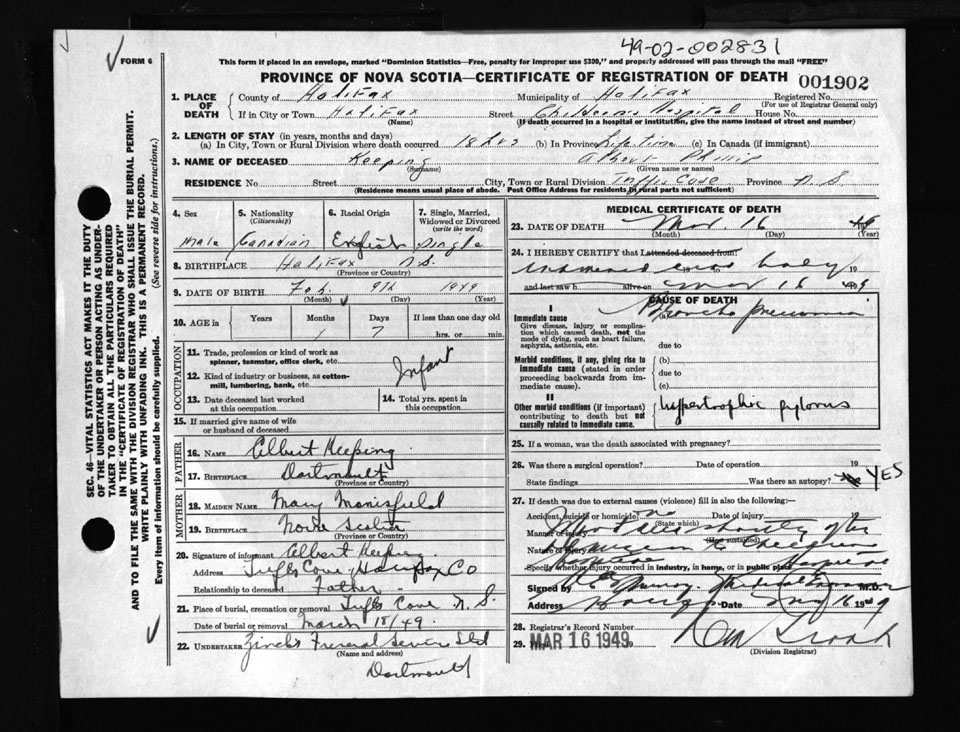 49-02-002831
FORM 6
This form if placed in an envelope, marked "Dominion Statistics—Free, penalty for improper use $300," and properly addressed will pass through the mail "FREE"
PROVINCE OF NOVA SCOTIA—CERTIFICATE OF REGISTRATION OF DEATH 001902
1. PLACE OF DEATH County of Halifax Municipality of Halifax Registered No.
(For use of Registrar General only)
If in City or Town Halifax Street Childrens Hospital House No.
(Name) (If death occurred in a hospital or institution, give the name instead of street and number)
2. LENGTH OF STAY (in years, months and days)
(a) In City, Town or Rural Division where death occurred 18 (b) In Province Life time (c) In Canada (if immigrant)
3. NAME OF DECEASED Keeping Albert Phillip
(Surname) (Given name or names)
RESIDENCE No. Street City, Town or Rural Division Tuffts Cove Province N.S
(Residence means usual place of abode. Post Office Address for residents in rural parts not sufficient)
4. Sex 5. Nationality (Citizenship) 6. Racial Origin 7. Single, Married, Widowed or Divorced (write the word)
Male Canadian English Single
8. BIRTHPLACE Halifax N.S.
(Province or Country)
9. DATE OF BIRTH Feb. 9th 1949
(Month) (Day) (Year)
10. AGE in Years Months Days If less than one day old
1 7 hrs. or min.
OCCUPATION
11. Trade, profession or kind of work as spinner, teamster, office clerk, etc.
12. Kind of industry or business, as cotton-mill, lumbering, bank, etc.
Infant
13. Date deceased last worked at this occupation
14. Total yrs. spent in this occupation
15. If married give name of wife or husband of deceased
FATHER
16. NAME Albert Keeping
17. BIRTHPLACE Dartmouth
(Province or Country)
MOTHER
18. MAIDEN NAME Mary Manisfield
19. BIRTHPLACE Nova Scotia
(Province or Country)
20. Signature of informant Albert Keeping
Address Tuffts Cove Halifax Co
Relationship to deceased Father
21. Place of burial, cremation or removal Tuffts Cove N.S.
Date of burial or removal March 18/49
22. UNDERTAKER Zincks Funeral Service Ltd
(Name and address)
Dartmouth
MEDICAL CERTIFICATE OF DEATH
23. DATE OF DEATH Mar. 16 49
(Month) (Day) (Year)
24. I HEREBY CERTIFY that I attended deceased from:
body 19
and last saw h alive on Mar 16 1949
CAUSE OF DEATH
I
Immediate cause (a) Broncho pneumonia
Give disease, injury or complication which caused death, not the mode of dying, such as heart failure, asphyxia, asthenia, etc.
due to
Morbid conditions, if any, giving rise to immediate cause (stated in order proceeding backwards from immediate cause).
(b)
due to
(c)
II
Other morbid conditions (if important) contributing to death but not causally related to immediate cause.
hypertrophic pylorus
25. If a woman, was the death associated with pregnancy?
26. Was there a surgical operation? Date of operation 19
State findings Was there an autopsy? YES
27. If death was due to external causes (violence) fill in also the following:—
Accident, suicide or homicide? no Date of injury
(State which)
Manner of injury shortly after
(How sustained)
Nature of injury
Specify whether injury occurred in industry, in home, or in public place
Signed by Medical Examiner M.D.
Address Date Mar 16 1949
28. Registrar's Record Number
29. MAR 16 1949
(Division Registrar)
SEC. 46—VITAL STATISTICS ACT MAKES IT THE DUTY
OF THE UNDERTAKER OR PERSON ACTING AS UNDER-
TAKER TO OBTAIN ALL THE PARTICULARS REQUIRED
IN THE "CERTIFICATE OF REGISTRATION OF DEATH"
AND TO FILE THE SAME WITH THE DIVISION REGISTRAR WHO SHALL ISSUE THE BURIAL PERMIT.
WRITE PLAINLY WITH UNFADING INK. THIS IS A PERMANENT RECORD.
Every item of information should be carefully supplied. (See reverse side for instructions.)